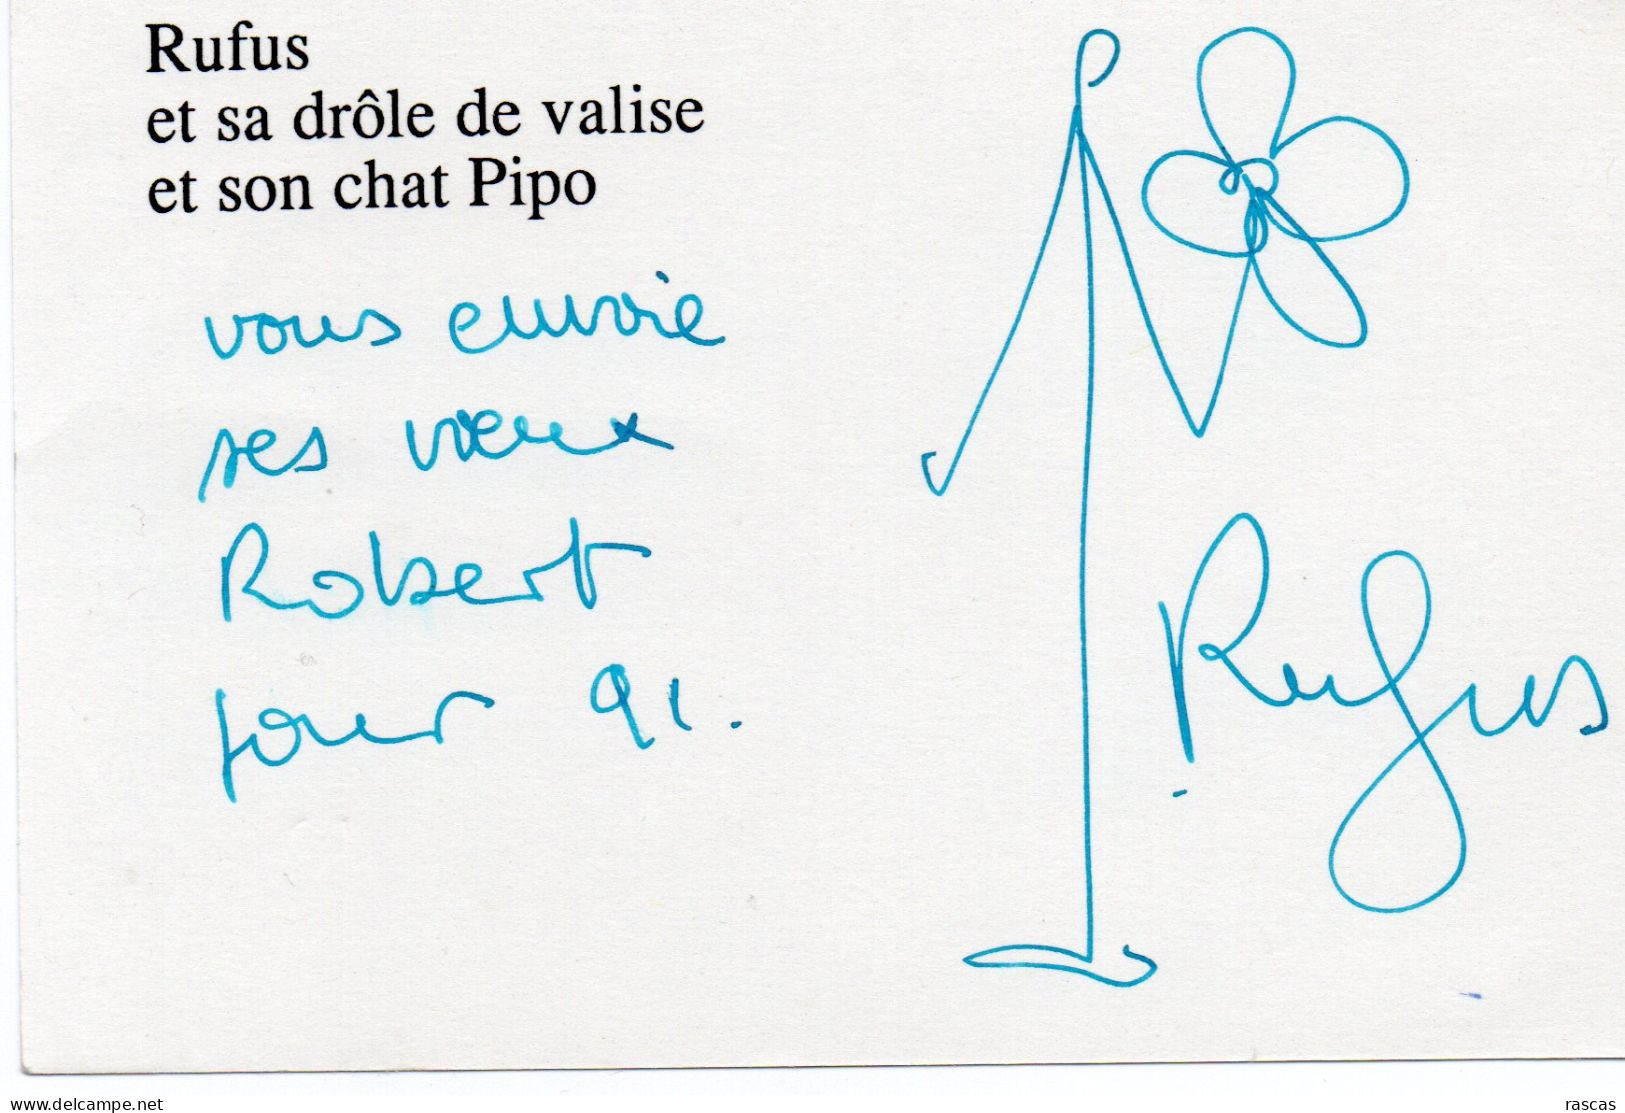 Rufus
et sa drôle de valise
et son chat Pipo
vous envoie
ses vœux
Robert
pour 91.
Rufus
www.delcampe.net
rascas